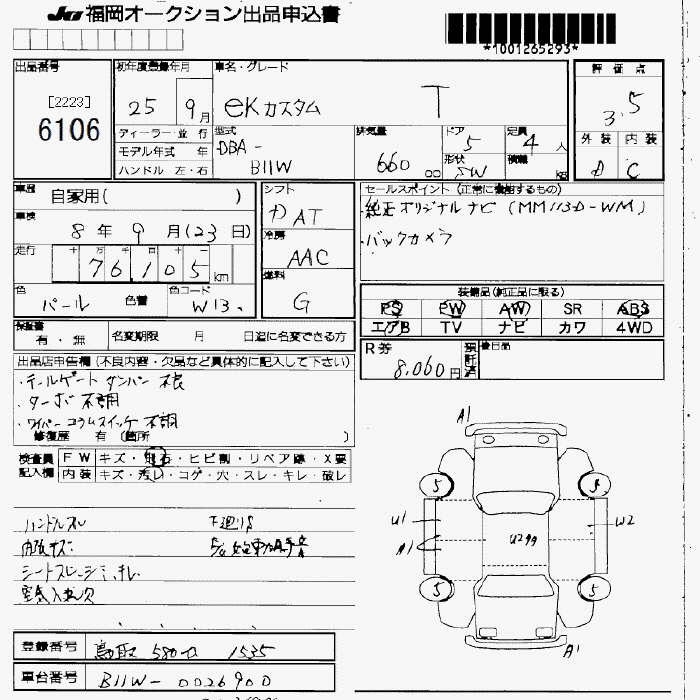 JU 福岡オークション出品申込書
*1001265293*
出品番号
[2223]
6106
初年度登録年月
25 9月
車名・グレード
eKカスタム T
評価点
3.5
外装 内装
D C
ディーラー・並行
モデル年式 年
ハンドル 左・右
型式
DBA-
B11W
排気量
660 cc
ドア
5
形状
SW
定員
4人
積載
kg
車歴
自家用( )
車検
8年 9月(23日)
走行
十 万 千 百 十 一
76,105 km
色
パール
色替
色コード
W13
シフト
DAT
冷房
AAC
燃料
G
セールスポイント (正常に機能するもの)
・純正オリジナルナビ(MM113D-WM)
・バックカメラ
装備品(純正品に限る)
PS PW AW SR ABS
エアB TV ナビ カワ 4WD
保証書
有・無
名変期限 月 日迄に名変できる方
R券
8,060円
預託済
後日品
出品店申告欄(不良内容・欠品など具体的に記入して下さい)
・テールゲートダンパー不良
・ターボ不調
・ワイパーコラムスイッチ不調
修復歴 有(箇所 )
検査員
記入欄
FW キズ・飛石・ヒビ割・リペア跡・X要
内装 キズ・汚レ・コゲ・穴・スレ・キレ・破レ
ハンドルスレ
下廻りS
内張キズ
A1
5 5
U1
A1
U2
W2
5 5
A1
登録番号 鳥取 580 1535
車台番号 B11W-0026900